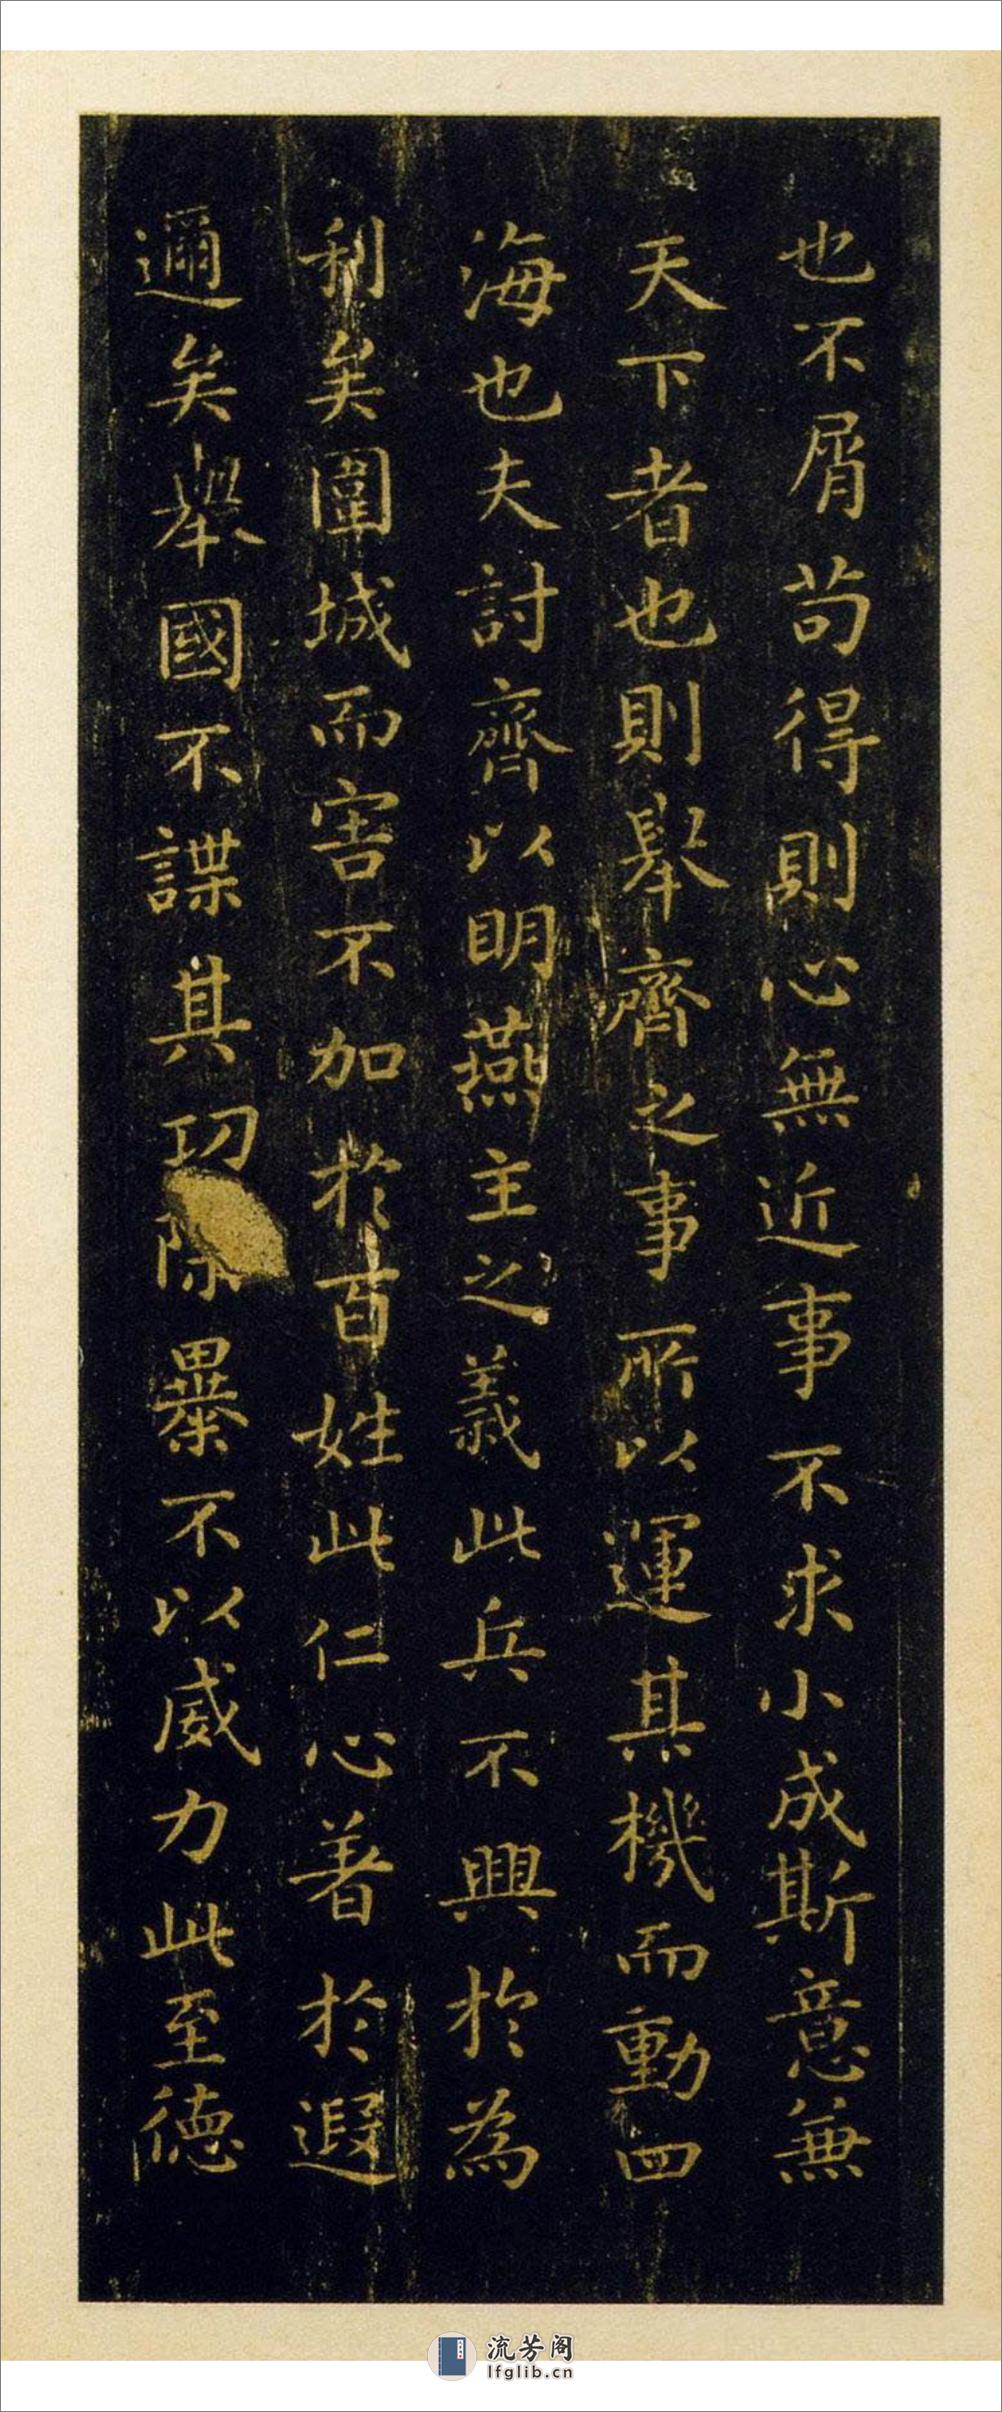 也不屑苟得則心無近事不求小成斯意兼
天下者也則舉齊之事所以運其機而動四
海也夫討齊以明燕主之義此兵不興於為
利矣圍城而害不加於百姓此仁心著於遐
邇矣舉國不謀其功除暴不以威力此至德
流芳阁
lfglib.cn